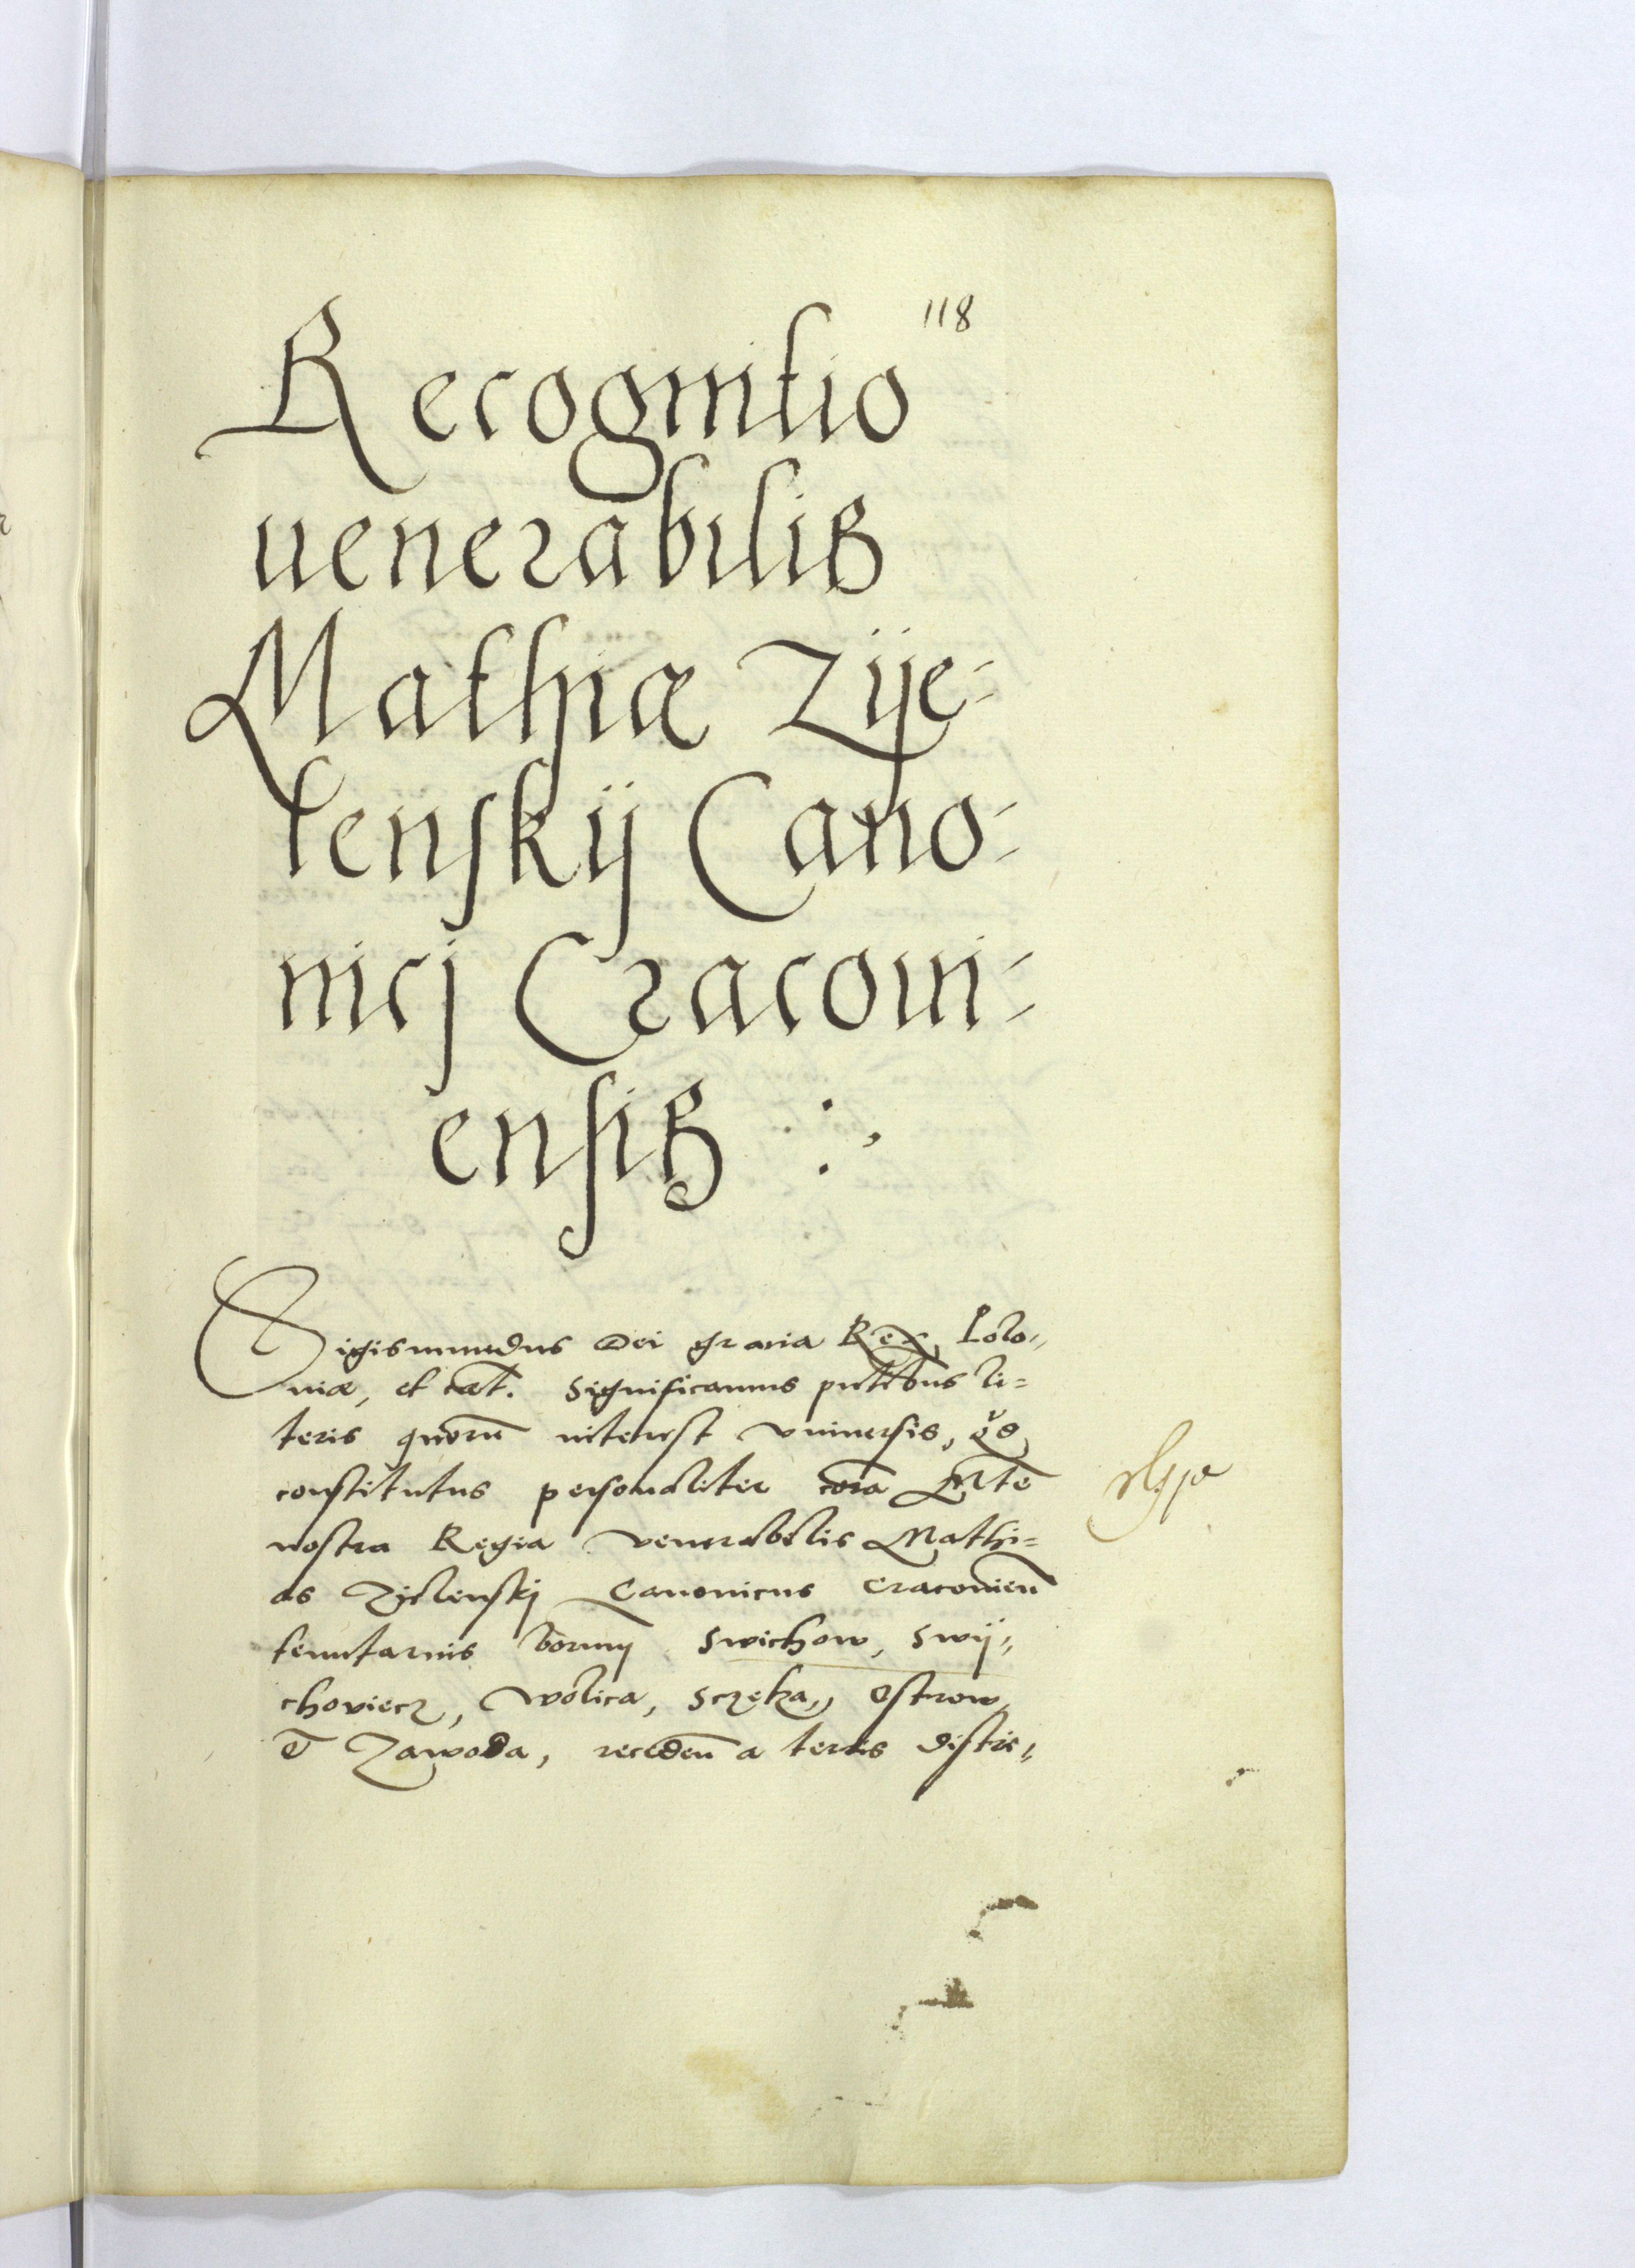 118
Recognitio
uenerabilis
Mathiæ Zije-
lenskij Cano-
nicj Cracoui-
ensis :,
Sigismundus Dei gracia Rex, Polo„
niæ, et cæt. Significamus pntibus li=
teris quorũ interest vniuersis, qđ
constitutus personaliter corã Mte
nostra Regia venerabilis Mathi=
as Zielenskj Canonicus Cracouieñ
tenutarius bonorum Swichow, Swij„
choviecz, Wolica, Sczęka„ Ostrow,
et Zawoda, recedeñ a terris distri„